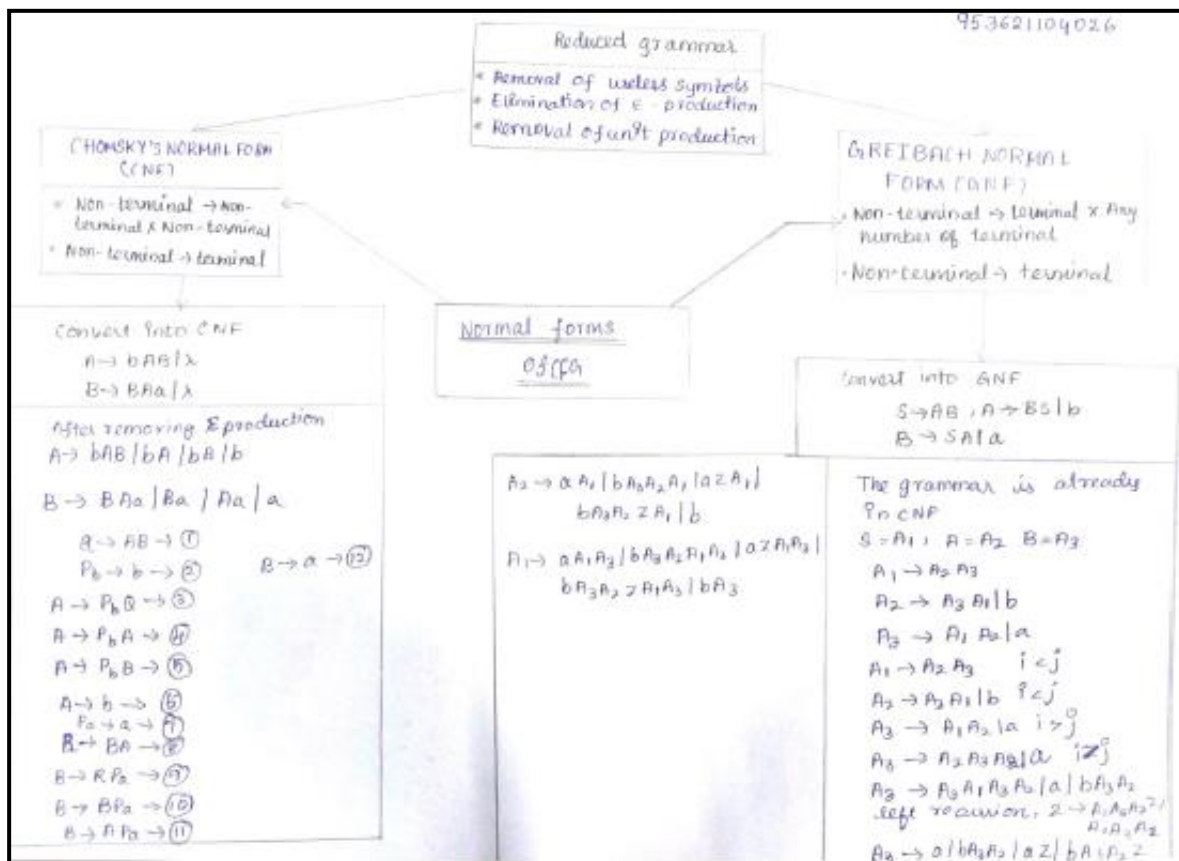 953621104026
Reduced grammar
• Removal of useless symbols
• Elimination of ε - production
• Removal of unit production
CHOMSKY'S NORMAL FORM
(CNF)
• Non-terminal → Non-
terminal x Non-terminal
• Non-terminal → terminal
GREIBACH NORMAL
FORM (GNF)
• Non-terminal → terminal x Any
number of terminal
• Non-terminal → terminal
Normal forms
Of CFG
Convert into CNF
A → bAB/λ
B → BAa/λ
After removing ε production
A → bAB/bA/bA/b
B → BAa/Ba/Aa/a
Q → AB → ①
P_b → b → ②
B → a → ⑫
A → P_b Q → ③
A → P_b A → ④
A → P_b B → ⑤
A → b → ⑥
Pa → a → ⑦
R → BA → ⑧
B → RPa → ⑨
B → BPa → ⑩
B → APa → ⑪
A₂ → aA₁|bA₃A₂A₁|aZA₁|
bA₃A₂ZA₁|b
A₁ → aA₁A₃|bA₃A₂A₁A₃|aZA₁A₃|
bA₃A₂ZA₁A₃|bA₃
Convert into GNF
S → AB, A → BS|b
B → SA|a
The grammar is already
in CNF
S = A₁, A = A₂ B = A₃
A₁ → A₂A₃
A₂ → A₃A₁|b
A₃ → A₁A₂|a
A₁ → A₂A₃ i<j
A₂ → A₃A₁|b i<j
A₃ → A₁A₂|a i>j
A₃ → A₂A₃A₂|a
A₃ → A₃A₁A₃A₂|a|bA₃A₂
left recursion, Z →
A₃ → a|bA₃A₂|aZ|bA₃A₂Z